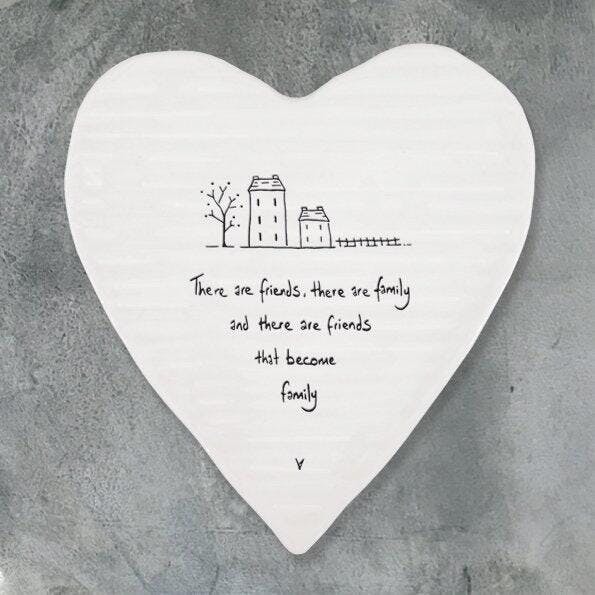 There are friends, there are family
and there are friends
that become
family